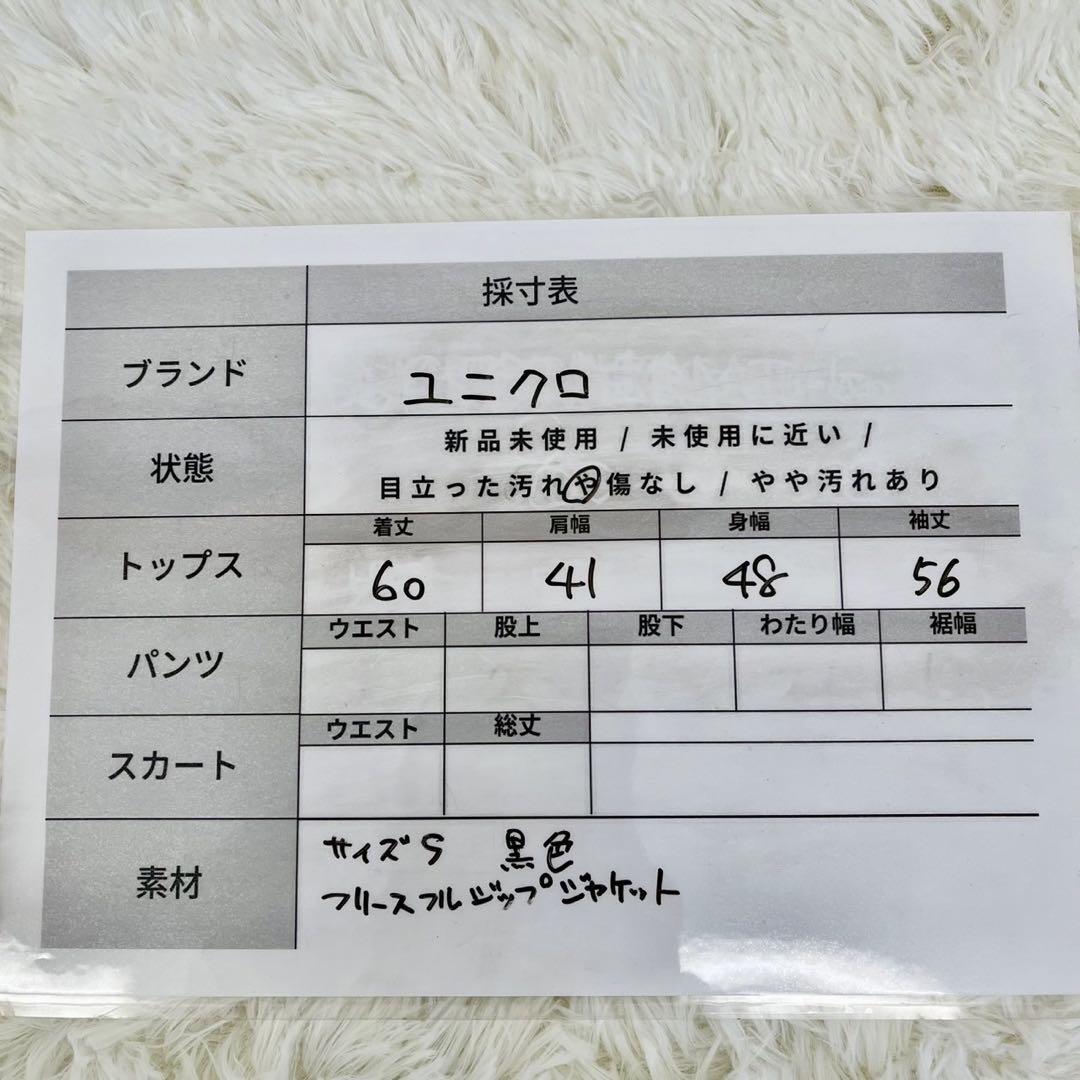 採寸表
ブランド
ユニクロ
状態
新品未使用 / 未使用に近い /
目立った汚れや傷なし / やや汚れあり
トップス
着丈 肩幅 身幅 袖丈
60 41 48 56
パンツ
ウエスト 股上 股下 わたり幅 裾幅
スカート
ウエスト 総丈
素材
サイズS 黒色
フリースフルジップジャケット